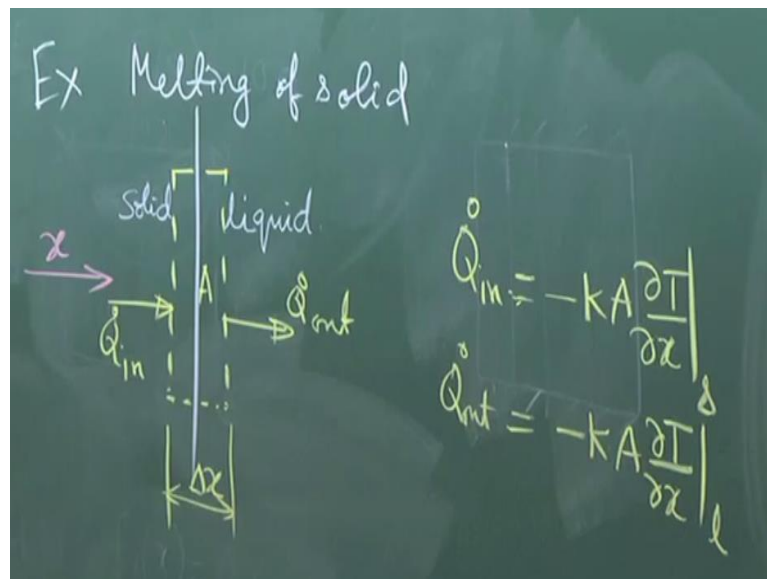 Ex Melting of solid
solid liquid.
x
A
Q̇in
Q̇out
Δx
Q̇in = -kA ∂T/∂x|s
Q̇out = -kA ∂T/∂x|l